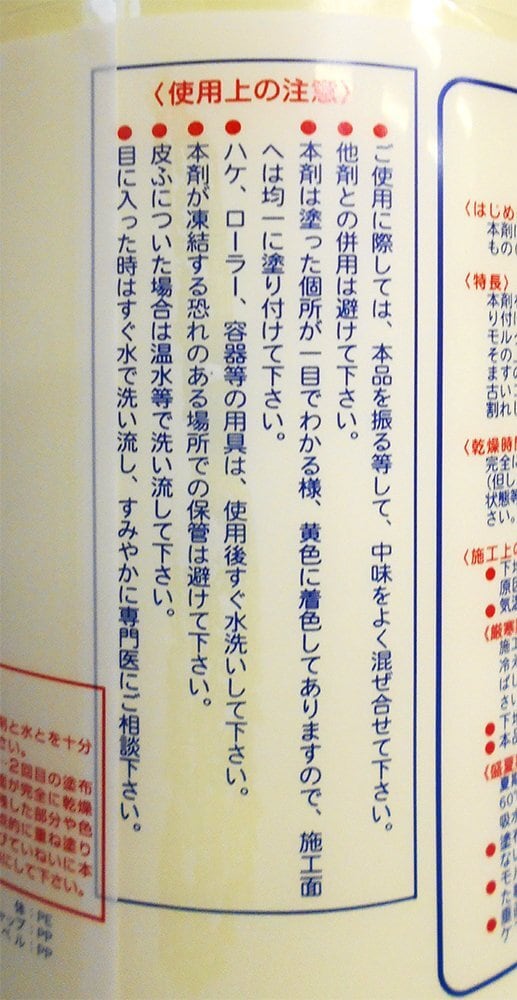 〈使用上の注意〉
●ご使用に際しては、本品を振る等して、中味をよく混ぜ合せて下さい。
●他剤との併用は避けて下さい。
●本剤は塗った個所が一目でわかる様、黄色に着色してありますので、施工面
へは均一に塗り付けて下さい。
●ハケ、ローラー、容器等の用具は、使用後すぐ水洗いして下さい。
●本剤が凍結する恐れのある場所での保管は避けて下さい。
●皮ふについた場合は温水等で洗い流して下さい。
●目に入った時はすぐ水で洗い流し、すみやかに専門医にご相談下さい。
〈はじめ
本剤
もの
〈特長〉
本剤
り付
モル
その
ますの
古い
割れし
〈乾燥時
完全
(但し
状態等
さい。
〈施工上の
●下
原因
●気温
〈厳寒
施工
冷え
ばし
さい
●下
●本品
〈盛夏
夏期
60
吸水
●塗布
ない
●モル
た
●重
ケ
剤と水とを十分
さい。
2回目の塗布
面が完全に乾燥
残した部分や色
的に重ね塗り
けていねいに本
にして下さい。
体：PE
ャップ：PP
ベル：PP